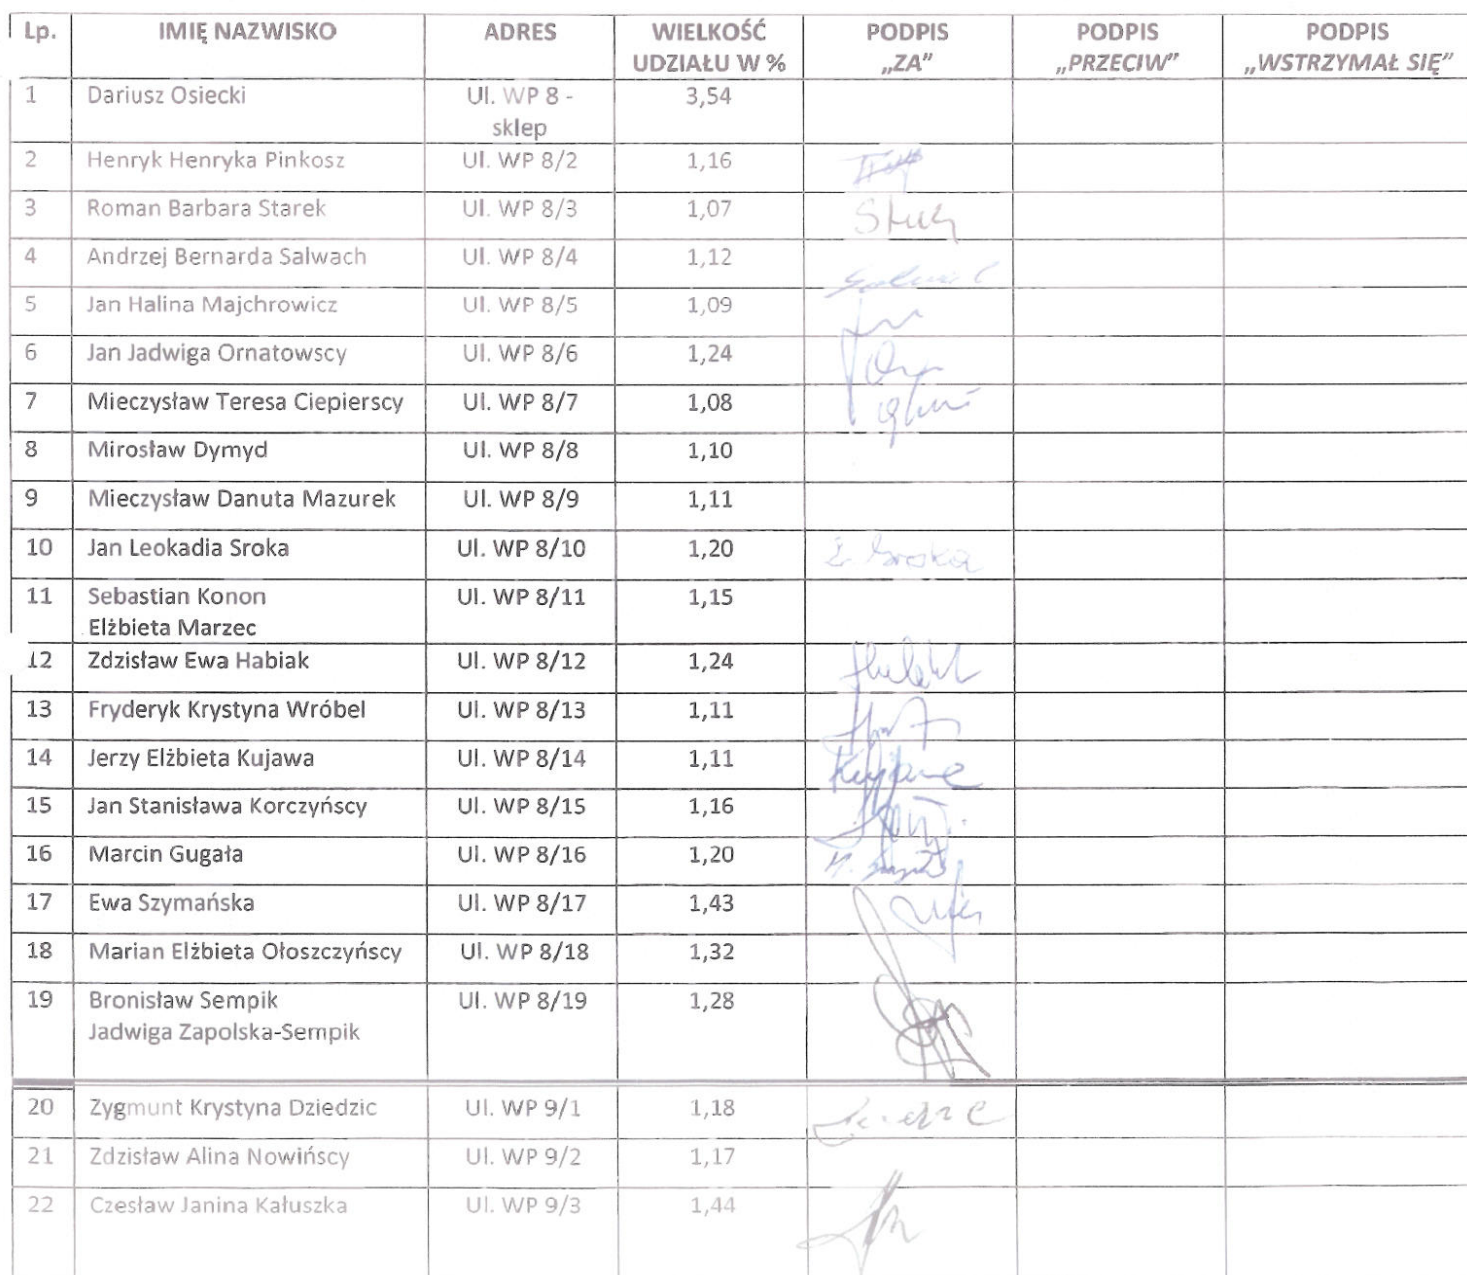 Lp. IMIĘ NAZWISKO ADRES WIELKOŚĆ UDZIAŁU W % PODPIS „ZA” PODPIS „PRZECIW” PODPIS „WSTRZYMAŁ SIĘ”
1 Dariusz Osiecki Ul. WP 8 - sklep 3,54
2 Henryk Henryka Pinkosz Ul. WP 8/2 1,16
3 Roman Barbara Starek Ul. WP 8/3 1,07
4 Andrzej Bernarda Salwach Ul. WP 8/4 1,12
5 Jan Halina Majchrowicz Ul. WP 8/5 1,09
6 Jan Jadwiga Ornatowscy Ul. WP 8/6 1,24
7 Mieczysław Teresa Ciepierscy Ul. WP 8/7 1,08
8 Mirosław Dymyd Ul. WP 8/8 1,10
9 Mieczysław Danuta Mazurek Ul. WP 8/9 1,11
10 Jan Leokadia Sroka Ul. WP 8/10 1,20 Sroka
11 Sebastian Konon Ul. WP 8/11 1,15
Elżbieta Marzec
12 Zdzisław Ewa Habiak Ul. WP 8/12 1,24
13 Fryderyk Krystyna Wróbel Ul. WP 8/13 1,11
14 Jerzy Elżbieta Kujawa Ul. WP 8/14 1,11
15 Jan Stanisława Korczyńscy Ul. WP 8/15 1,16
16 Marcin Gugała Ul. WP 8/16 1,20
17 Ewa Szymańska Ul. WP 8/17 1,43
18 Marian Elżbieta Ołoszczyńscy Ul. WP 8/18 1,32
19 Bronisław Sempik Ul. WP 8/19 1,28
Jadwiga Zapolska-Sempik
20 Zygmunt Krystyna Dziedzic Ul. WP 9/1 1,18
21 Zdzisław Alina Nowińscy Ul. WP 9/2 1,17
22 Czesław Janina Kałuszka Ul. WP 9/3 1,44